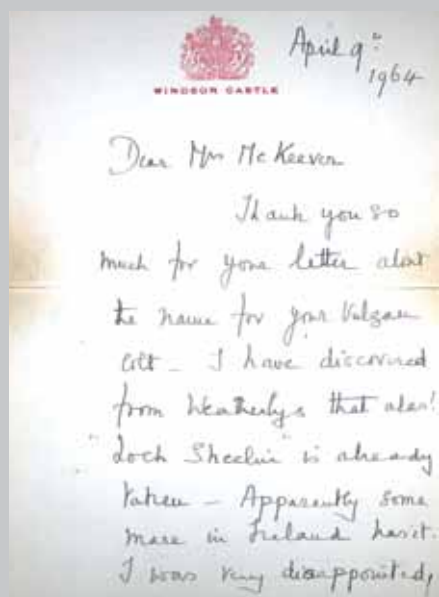 April 9th
1964
WINDSOR CASTLE
Dear Mrs McKeever
Thank you so
much for your letter about
the name for your Vulgan
colt - I have discovered
from Weatherbys that alas!
"Loch Sheelin" is already
taken - Apparently some
mare in Ireland has it.
I was very disappointed,